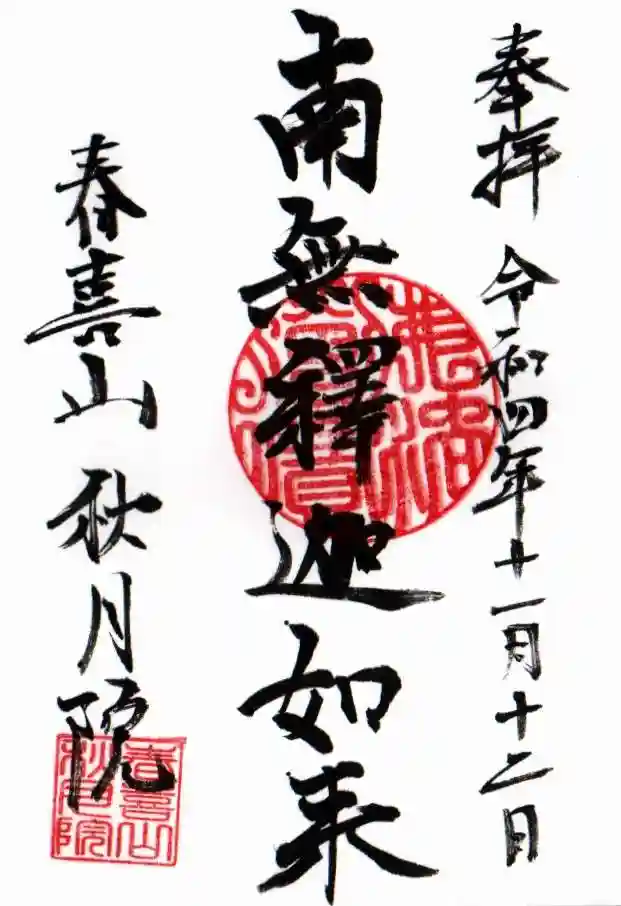 奉拝 令和四年十一月十二日
南無釋迦如来
春喜山 秋月院
春喜山
秋月院